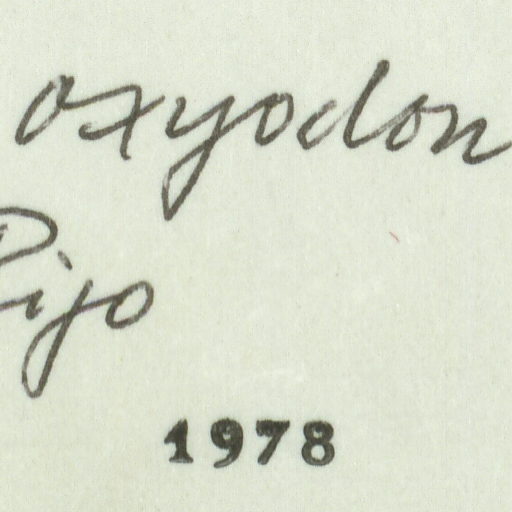 oxyodon
Rigo
1978